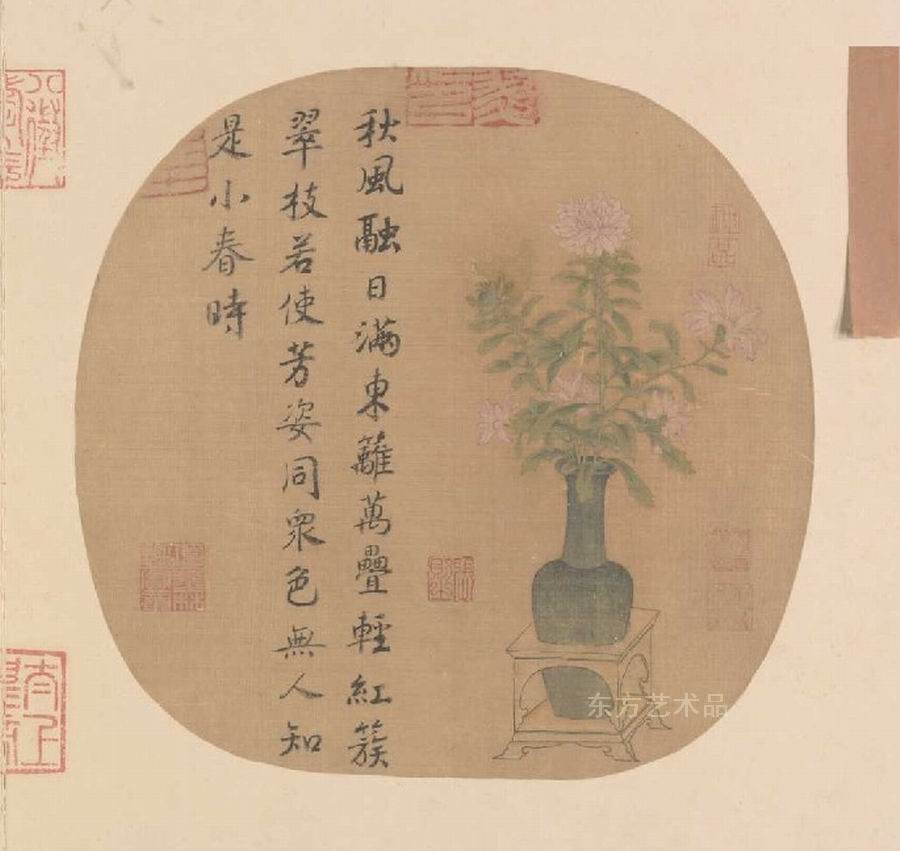 秋風融日滿東籬萬疊輕紅簇
翠枝若使芳姿同衆色無人知
是小春時
东方艺术品